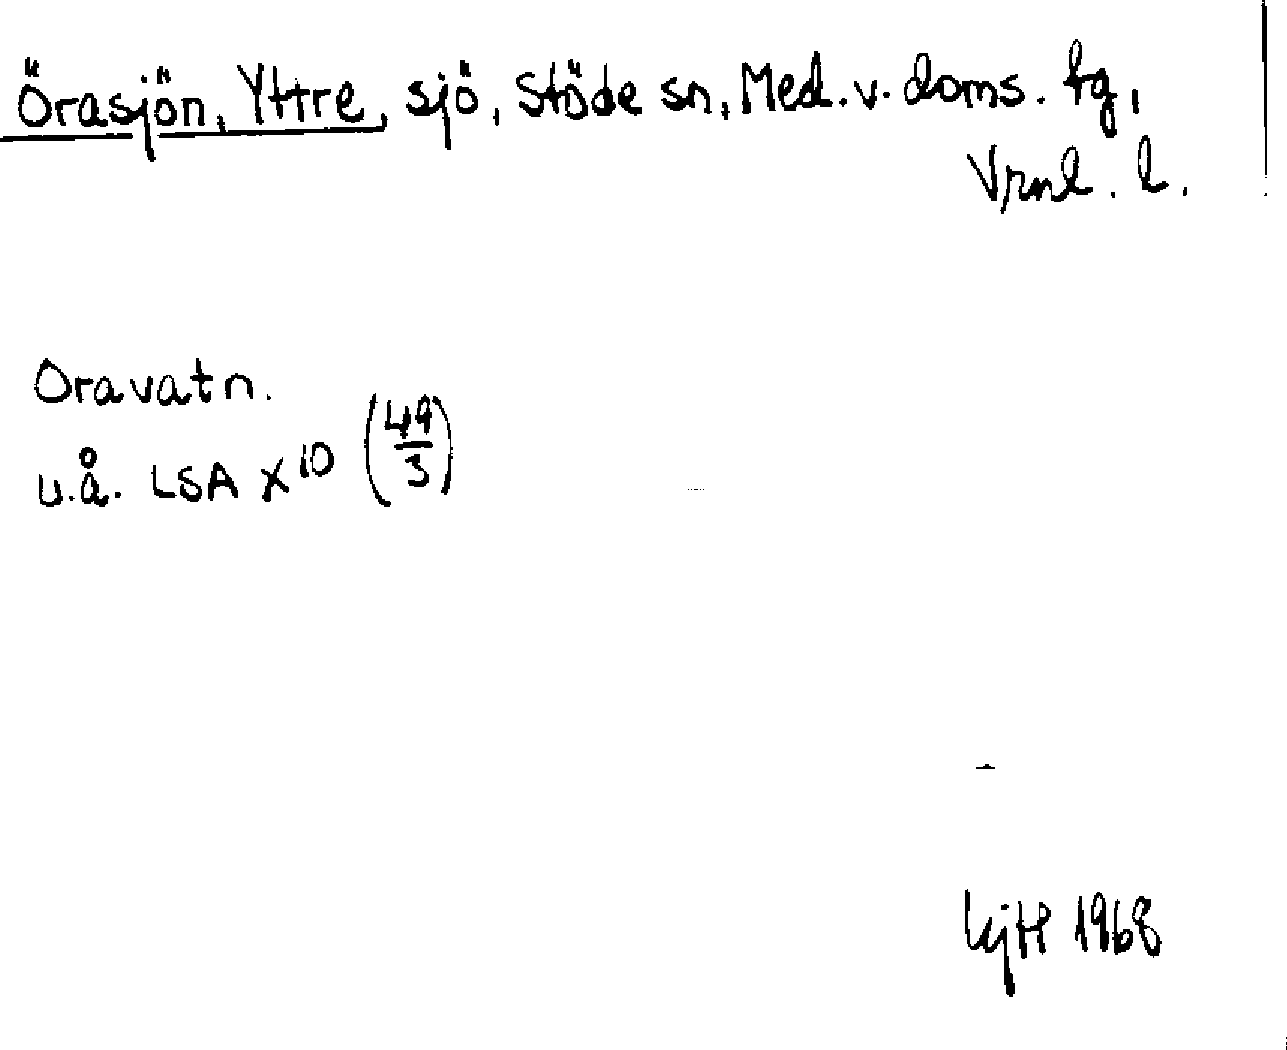 Örasjön, Yttre, sjö, Stöde sn, Med. v. doms. tg,
Vrnl. l.
Oravatn.
u.å. LSA X¹⁰ (49/3)
1968